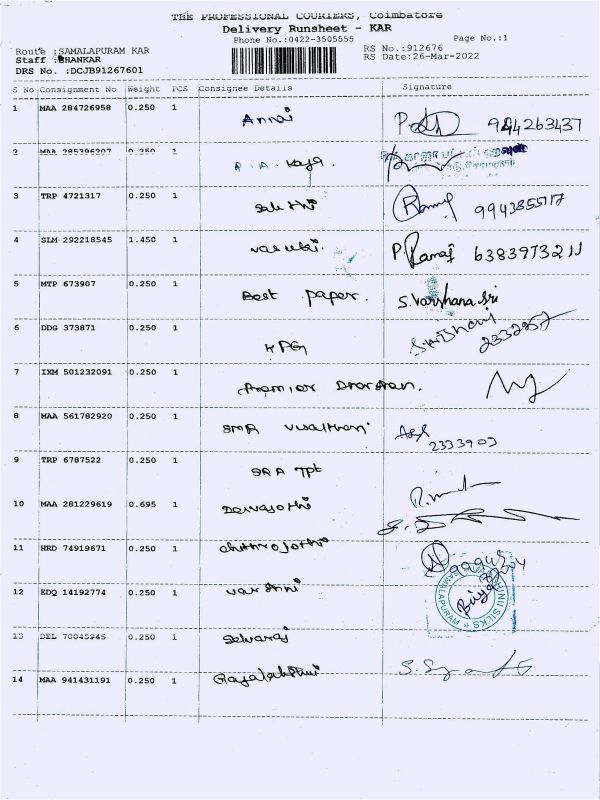 THE PROFESSIONAL COURIERS, Coimbatore
Delivery Runsheet - KAR
Phone No.:0422-3505555
Page No.:1
Route :SAMALAPURAM KAR
RS No.:912676
Staff :BHANKAR
RS Date:26-Mar-2022
DRS No. :DCJB91267601
S No Consignment No Weight PCS Consignee Details Signature
1 MAA 284726958 0.250 1 Annai
2 MAA 285396207 0.250 1 P.A. Kaja.
3 TRP 4721317 0.250 1 Sakthi
4 SLM 292218545 1.450 1 Vasuki. P. Ramaj 6383973211
5 MTP 673907 0.250 1 Best paper. S. Varshana Sri
6 DDG 373871 0.250 1 KPG 2332957
7 IXM 501232091 0.250 1
8 MAA 561782920 0.250 1 SMR 2333903
9 TRP 6787522 0.250 1 SRA Tpt
10 MAA 281229619 0.695 1 Devajothi
11 HRD 74919671 0.250 1 Chithrajothi
12 EDQ 14192774 0.250 1 Varshni
SAMALAPURAM
SILKS
13 DEL 70045945 0.250 1 Selvaraj
14 MAA 941431191 0.250 1 Rajalakshmi